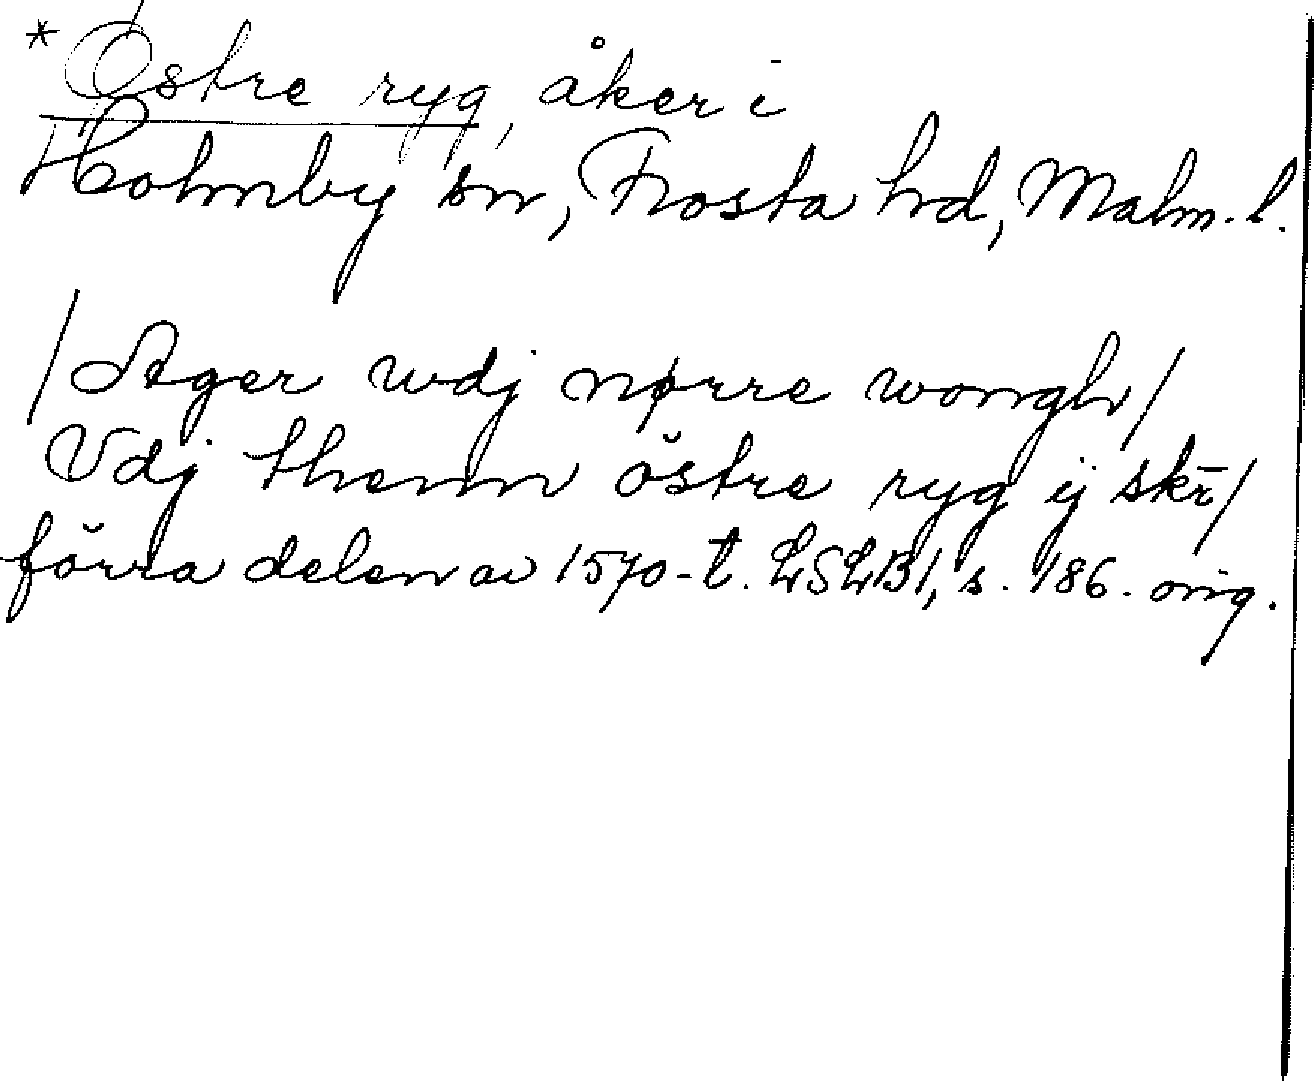 *Östre ryg, åker i
Holmby sn, Frosta hd, Malm. l.
/Ager wdj nørre wongh/
Vdj thenn östre ryg ij skr̄/
förra delen av 1570-t. LSLB1, s. 186. orig.